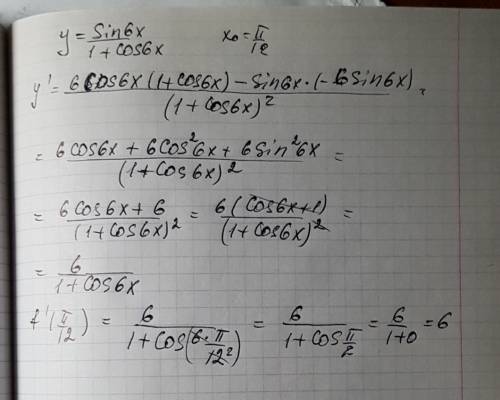 y = sin6x / (1 + cos6x)    x₀ = π/12
y' = (6cos6x (1 + cos6x) − sin6x · (−6sin6x)) / (1 + cos6x)² =
= (6cos6x + 6cos²6x + 6sin²6x) / (1 + cos6x)² =
= (6cos6x + 6) / (1 + cos6x)² = 6(cos6x + 1) / (1 + cos6x)² =
= 6 / (1 + cos6x)
f'(π/12) = 6 / (1 + cos(6·π/12²)) = 6 / (1 + cos π/2) = 6 / (1+0) = 6